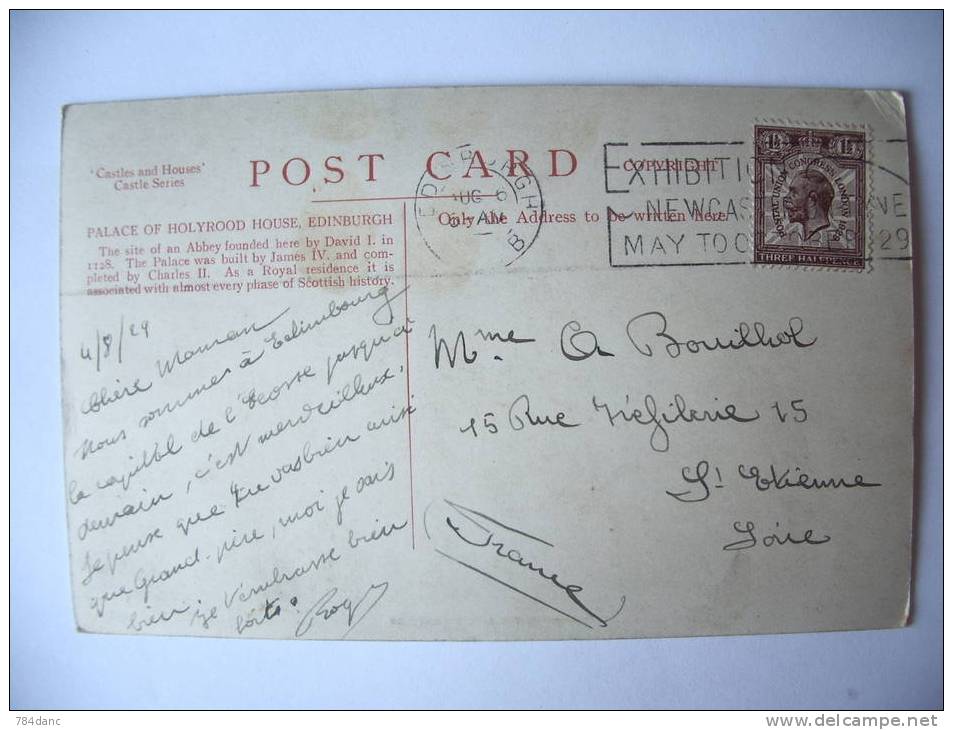 'Castles and Houses'
Castle Series
POST CARD
COPYRIGHT
PALACE OF HOLYROOD HOUSE, EDINBURGH
The site of an Abbey founded here by David I. in
1128. The Palace was built by James IV. and com-
pleted by Charles II. As a Royal residence it is
associated with almost every phase of Scottish history.
Only the Address to be written here
EDINBURGH
AUG 6
AM
B
EXHIBITI
NEWCAS NE
MAY TO OC 29
1½ 1½
POSTAL UNION CONGRESS LONDON 1929
THREE HALFPENCE
4/8/29
Chère Maman
Nous sommes à Edimbourg
la capital de l'Ecosse jusqu'à
demain, c'est merveilleux.
Je pense que tu vas bien ainsi
que Grand-père, moi je vais
bien je t'embrasse bien
forts. Roger
Mme A Bouilhol
15 Rue Tréfilerie 15
St Etienne
Loire
(France)
784danc
www.delcampe.net